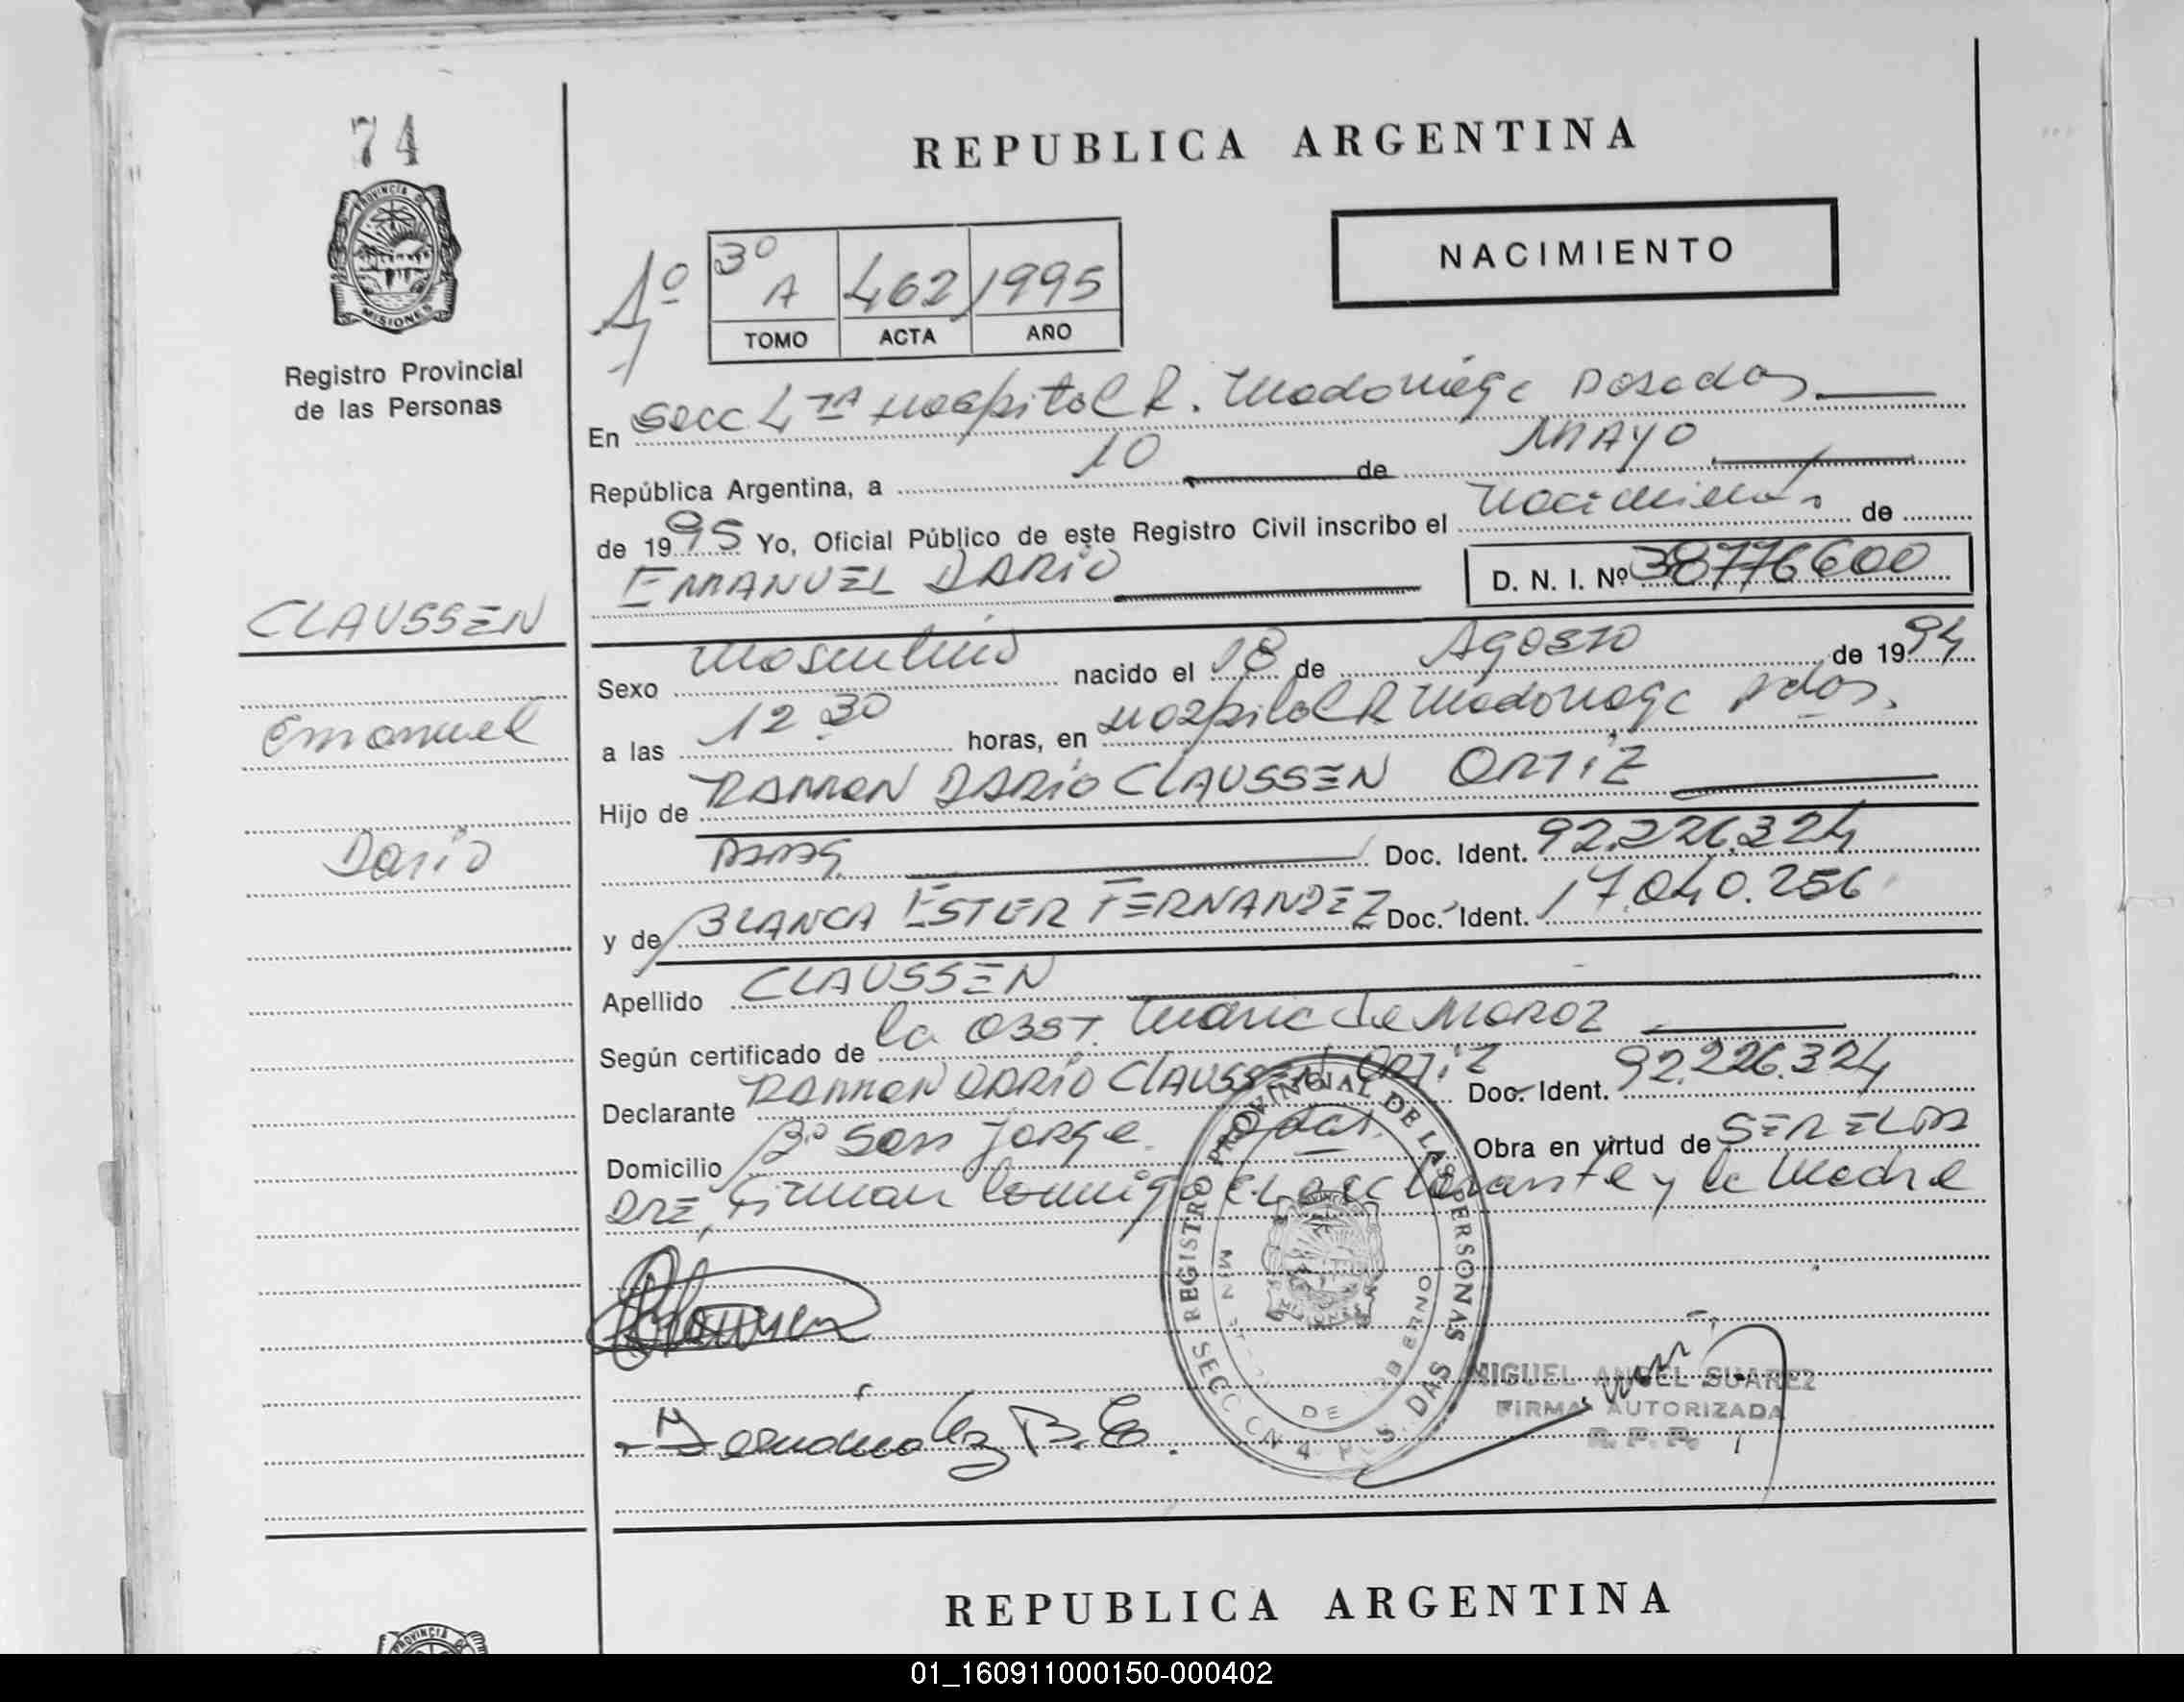 74
REPUBLICA ARGENTINA
PROVINCIA DE
MISIONES
Registro Provincial
de las Personas
NACIMIENTO
1º
3º A 462 1995
TOMO ACTA AÑO
En Secc 4ta Hospital R. Madariaga Posadas
República Argentina, a 10 de MAYO
de 1995 Yo, Oficial Público de este Registro Civil inscribo el Nacimiento de
EMANUEL DARIO D. N. I. Nº 38776600
CLAUSSEN
Emanuel
Dario
Sexo Masculino nacido el 18 de AGOSTO de 1994
a las 12 30 horas, en Hospital R Madariaga Pdas.
Hijo de RAMON DARIO CLAUSSEN ORTIZ
Doc. Ident. 92.226.324
y de BLANCA ESTER FERNANDEZ Doc. Ident. 17.040.256
Apellido CLAUSSEN
Según certificado de la OBST. Maria de MOROZ
Declarante RAMON DARIO CLAUSSEN ORTIZ Doc. Ident. 92.226.324
Domicilio Bº San Jorge Pdas. Obra en virtud de SER EL PA
DRE, Firman conmigo el declarante y la Madre
REGISTRO PROVINCIAL DE LAS PERSONAS
SECCION 4 P S DAS
DE GOBIERNO
Fernández B. E.
MIGUEL ANGEL SUAREZ
FIRMA AUTORIZADA
R. P. P.
REPUBLICA ARGENTINA
PROVINCIA DE
01_160911000150-000402